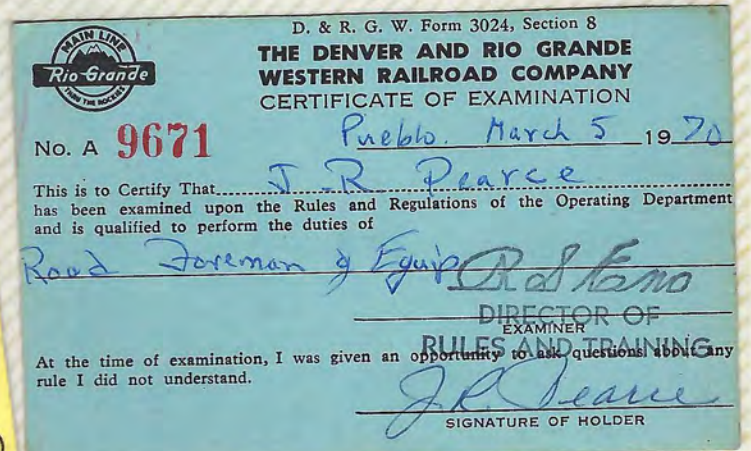 D. & R. G. W. Form 3024, Section 8
MAIN LINE
Rio Grande
THRU THE ROCKIES
THE DENVER AND RIO GRANDE
WESTERN RAILROAD COMPANY
CERTIFICATE OF EXAMINATION
No. A 9671
Pueblo. March 5 1970
This is to Certify That J. R. Pearce
has been examined upon the Rules and Regulations of the Operating Department
and is qualified to perform the duties of
Road Foreman of Equip
R S Eno
DIRECTOR OF
EXAMINER
RULES AND TRAINING
At the time of examination, I was given an opportunity to ask questions about any
rule I did not understand.
J. R. Pearce
SIGNATURE OF HOLDER